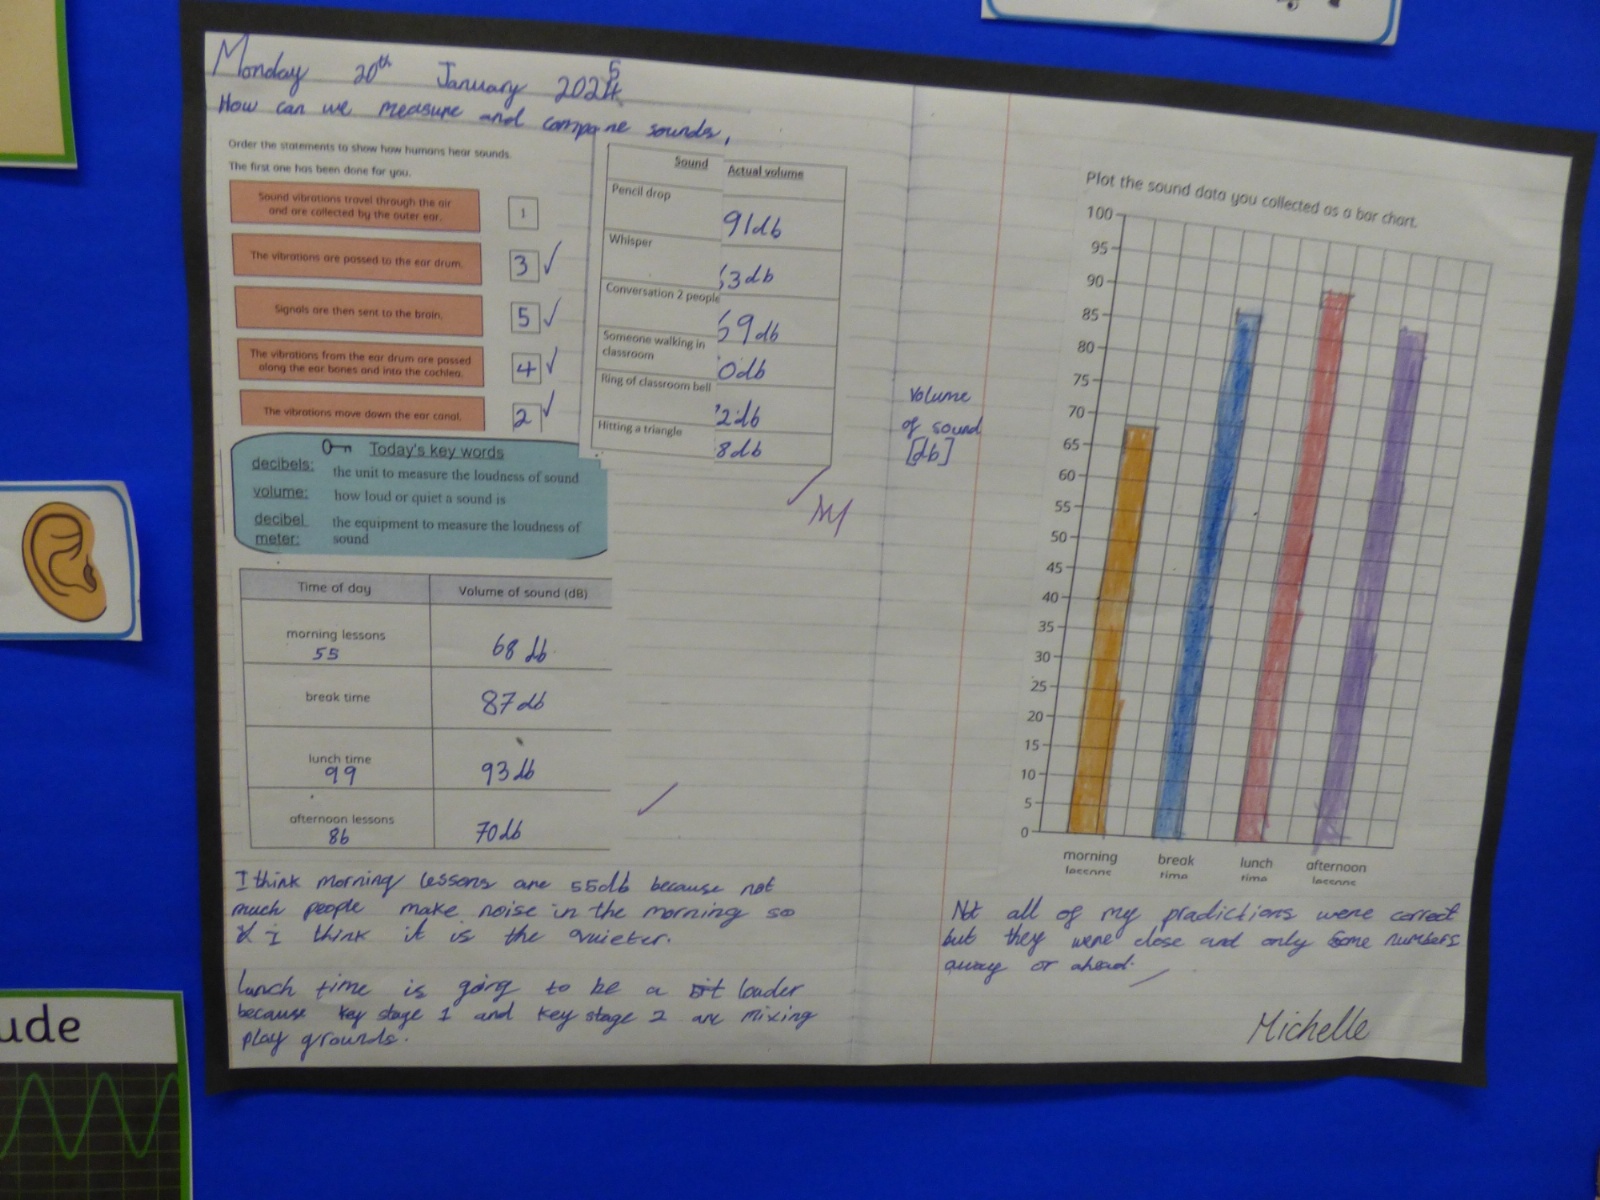 Monday 20th January 2025
How can we measure and compare sounds,
Order the statements to show how humans hear sounds.
The first one has been done for you.
Sound vibrations travel through the air
and are collected by the outer ear.
1
The vibrations are passed to the ear drum.
3
Signals are then sent to the brain.
5
The vibrations from the ear drum are passed
along the ear bones and into the cochlea.
4
The vibrations move down the ear canal.
2
Sound Actual volume
Pencil drop
91db
Whisper
3db
Conversation 2 people
69db
Someone walking in
classroom
0db
Ring of classroom bell
2db
Hitting a triangle
8db
Today's key words
decibels: the unit to measure the loudness of sound
volume: how loud or quiet a sound is
decibel the equipment to measure the loudness of
meter: sound
Time of day Volume of sound (dB)
morning lessons
55
68 db
break time
87db
lunch time
99
93db
afternoon lessons
86
70db
I think morning lessons are 55db because not
much people make noise in the morning so
i think it is the quieter.
lunch time is going to be a bit louder
because key stage 1 and key stage 2 are mixing
play grounds.
Plot the sound data you collected as a bar chart.
Volume
of sound
[db]
100
95
90
85
80
75
70
65
60
55
50
45
40
35
30
25
20
15
10
5
0
morning break lunch afternoon
lessons time time lessons
Not all of my pradictions were correct
but they were close and only some numbers
away or ahead.
Michelle
ude